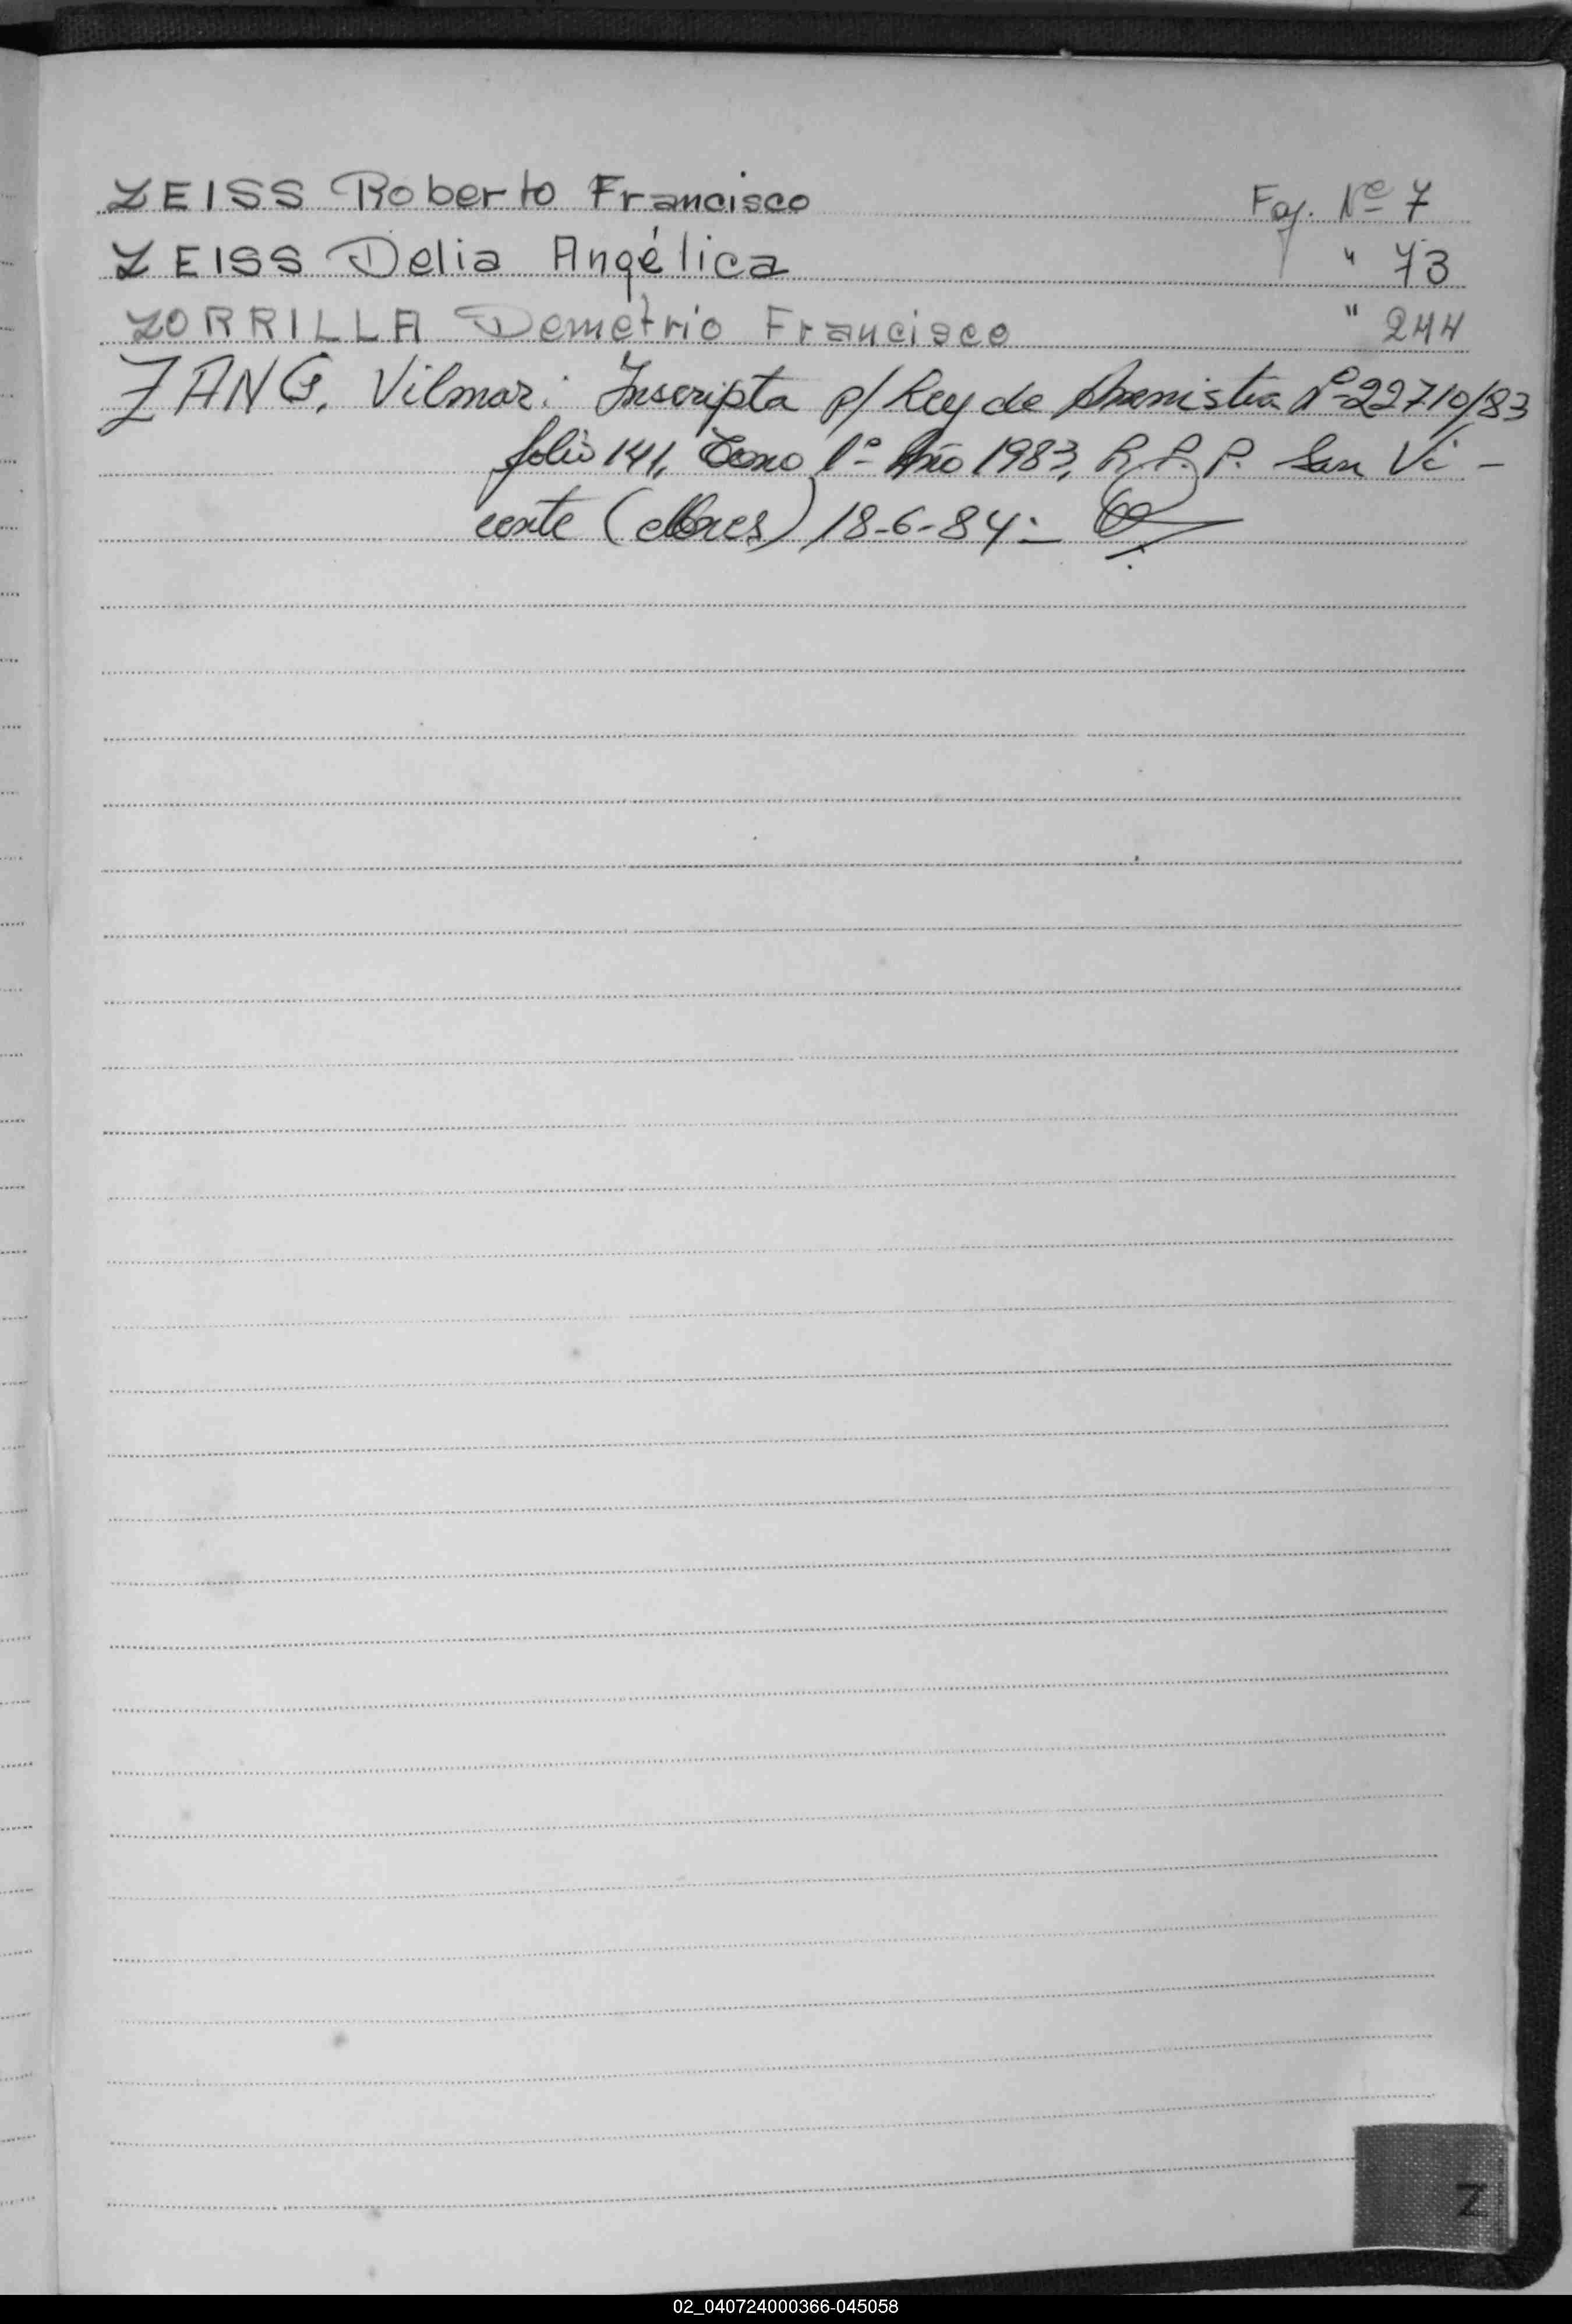 ZEISS Roberto Francisco Foj. Nº 7
ZEISS Delia Angélica " 73
ZORRILLA Demetrio Francisco " 244
ZANG, Vilmar: Inscripta p/ Ley de Amnistia Nº 22710/83
folio 141, Tomo 1º Año 1983, R.P.P. San Vi-
cente (Mnes) 18-6-84
Z
02_040724000366-045058